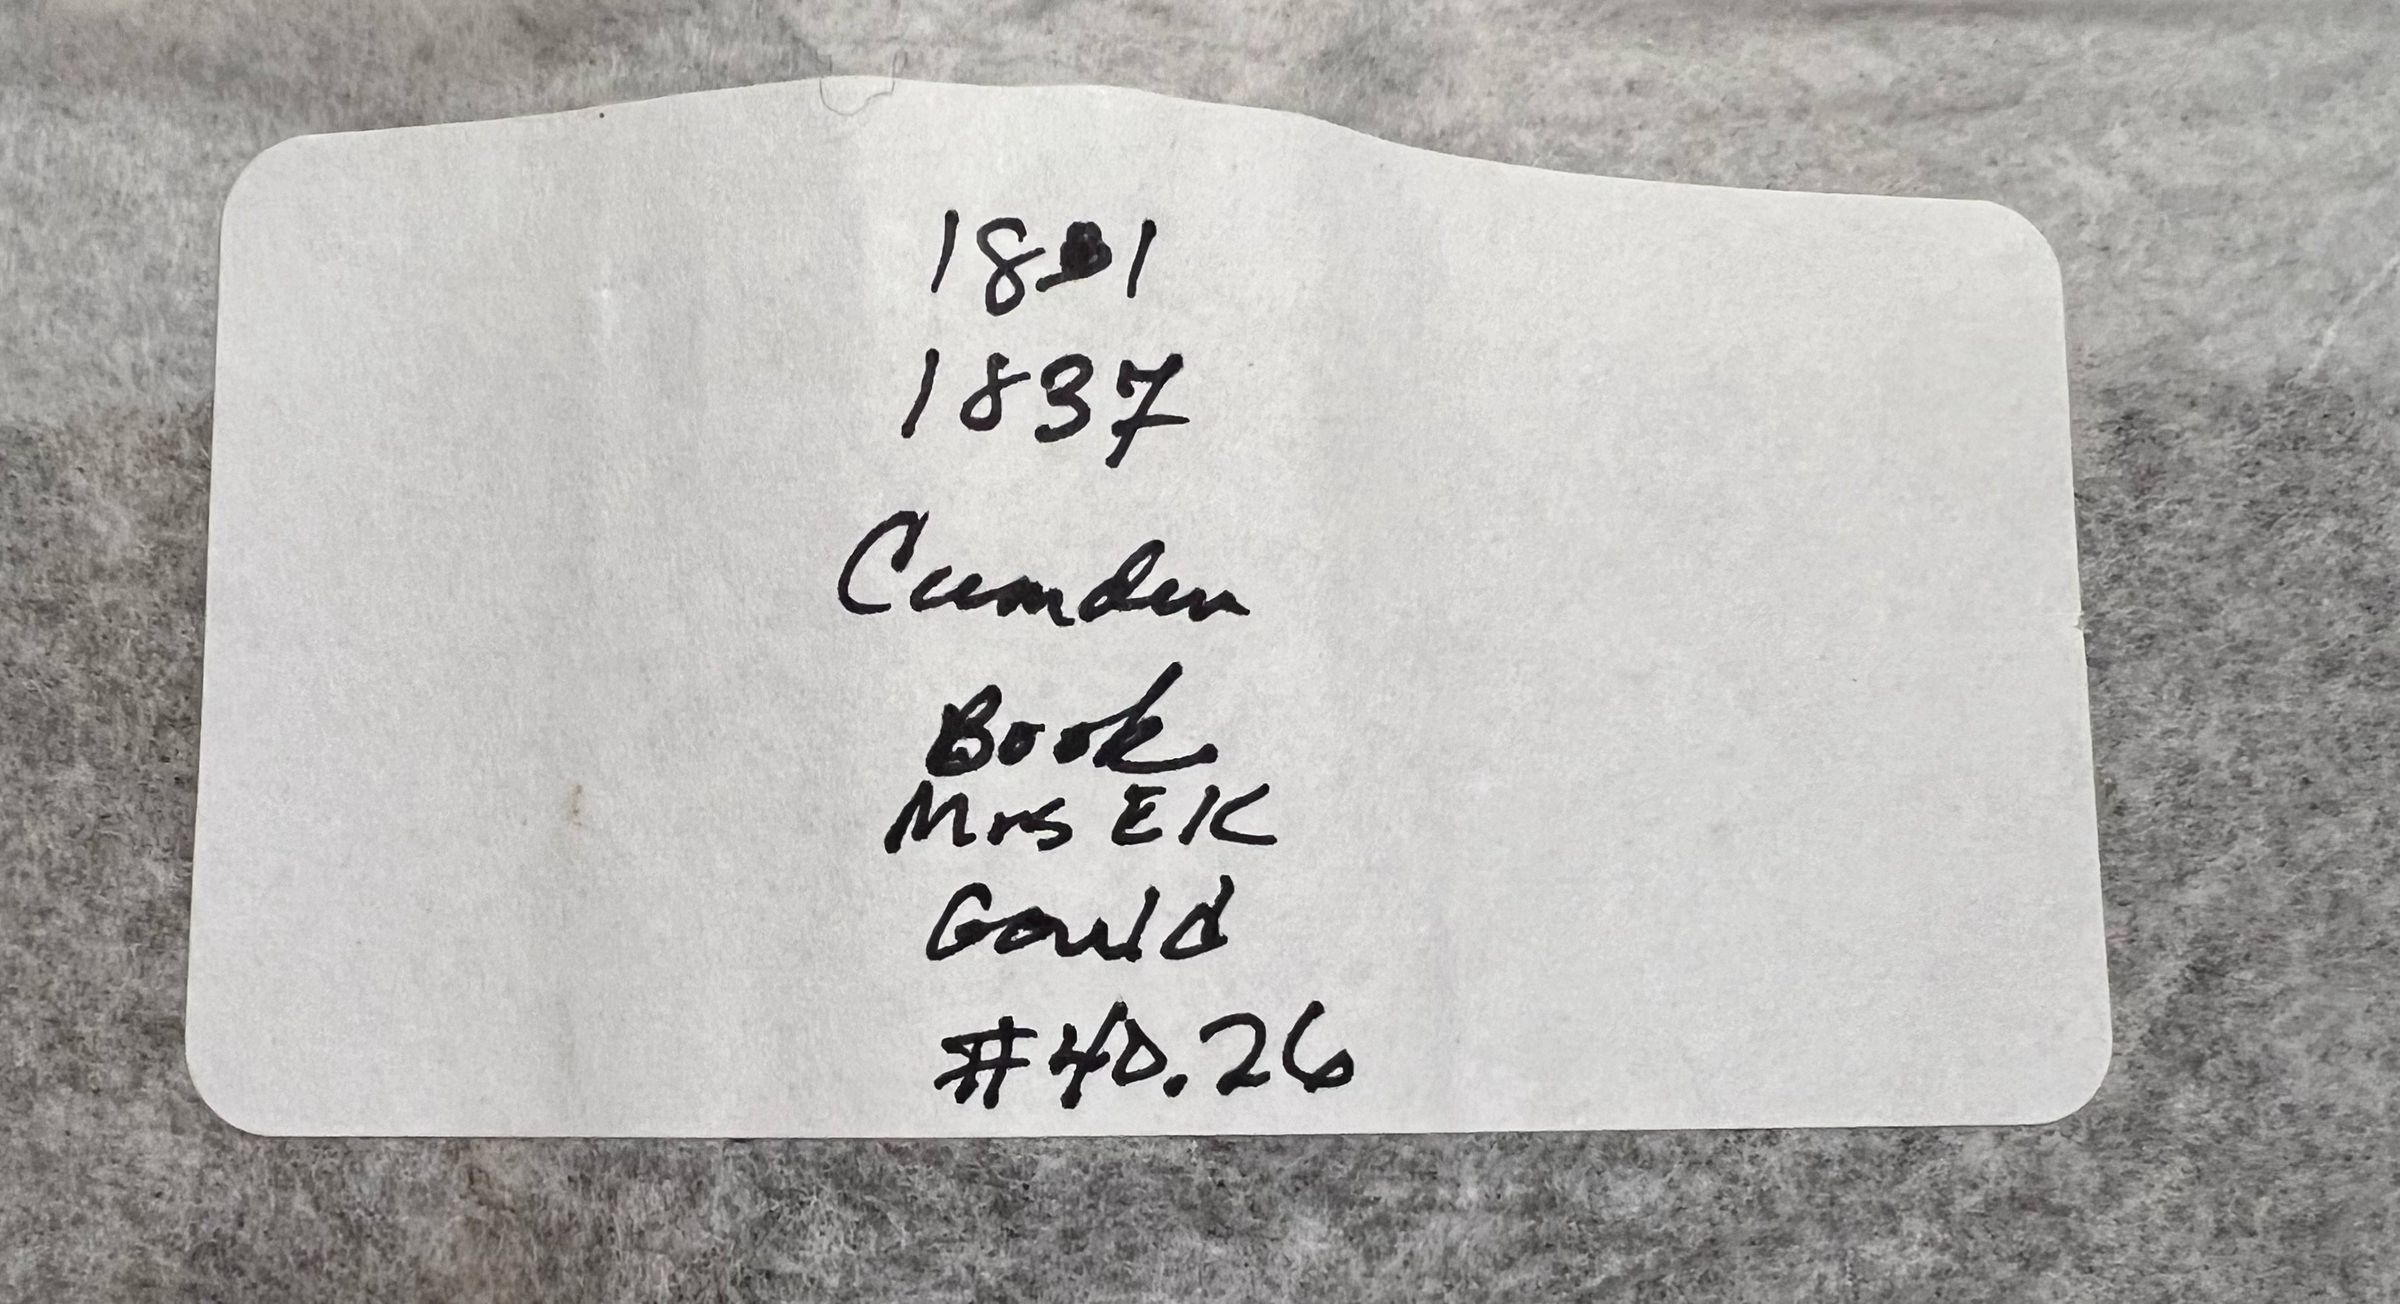 1837
Camden
Book
Mrs EK
Gould
#40.26